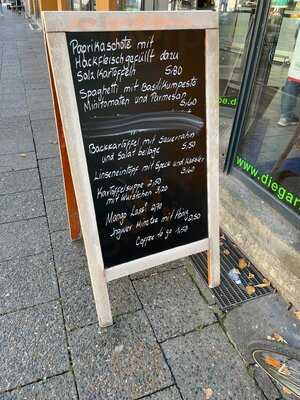 Paprikaschote mit
Hackfleisch gefüllt dazu
Salzkartoffeln 5.80
Spaghetti mit Basilikumpesto
Minitomaten und Parmesan
5.60
Backkartoffel mit Sauerrahm
und Salat beilage 5.50
Linseneintopf mit Speck und Kassler
3.60
Kartoffelsuppe 2.50
mit Würstchen 3.20
Mango Lassi 2,70
Ingwer Minztee mit Honig
2,50
Coffee to go 1.50
e.de
www.diegar